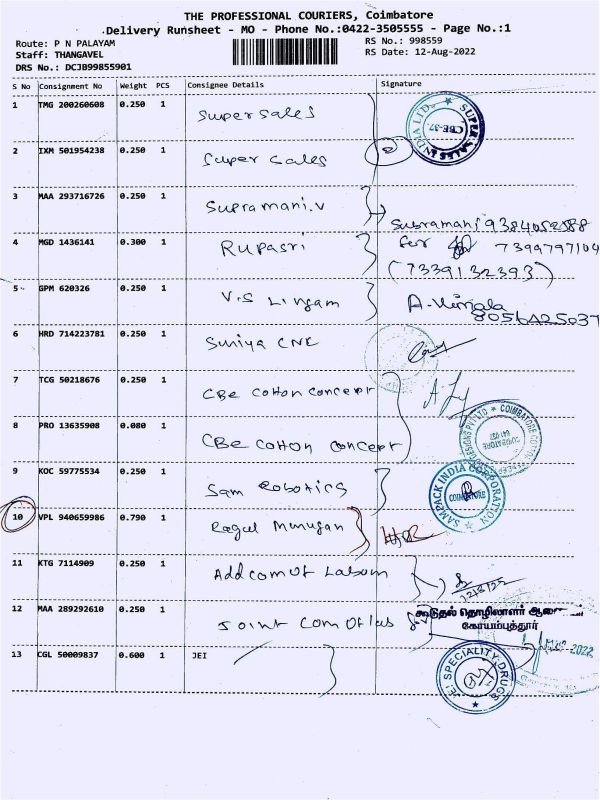 THE PROFESSIONAL COURIERS, Coimbatore
Delivery Runsheet - MO - Phone No.:0422-3505555 - Page No.:1
Route: P N PALAYAM
Staff: THANGAVEL
DRS No.: DCJB99855901
RS No.: 998559
RS Date: 12-Aug-2022
S No Consignment No Weight PCS Consignee Details Signature
1 TMG 200260608 0.250 1 Super sales
SUPER SALES INDIA LTD. CBE-37.
2 IXM 501954238 0.250 1 Super Sales
3 MAA 293716726 0.250 1 Supramani.v
Subramani 9384052588
4 MGD 1436141 0.300 1 Rupasri
for 7399797104
(7339132393)
5 GPM 620326 0.250 1 V.S Lingam
A. Vimala
8056425037
6 HRD 714223781 0.250 1 Suriya CNE
7 TCG 50218676 0.250 1 CBe Cotton Concept
8 PRO 13635908 0.080 1 CBe Cotton Concept
9 KOC 59775534 0.250 1 Sam Robotics
SAMPACK INDIA CORPORATION COIMBATORE
10 VPL 940659986 0.790 1 Ragul Murugan
11 KTG 7114909 0.250 1 Add com of Labom
12/8/22
12 MAA 289292610 0.250 1 Joint Com of Lab
கூடுதல் தொழிலாளர்
கோயம்புத்தூர்
2022
13 CGL 50009837 0.600 1 JEI
JEI SPECIALITY DRUGS